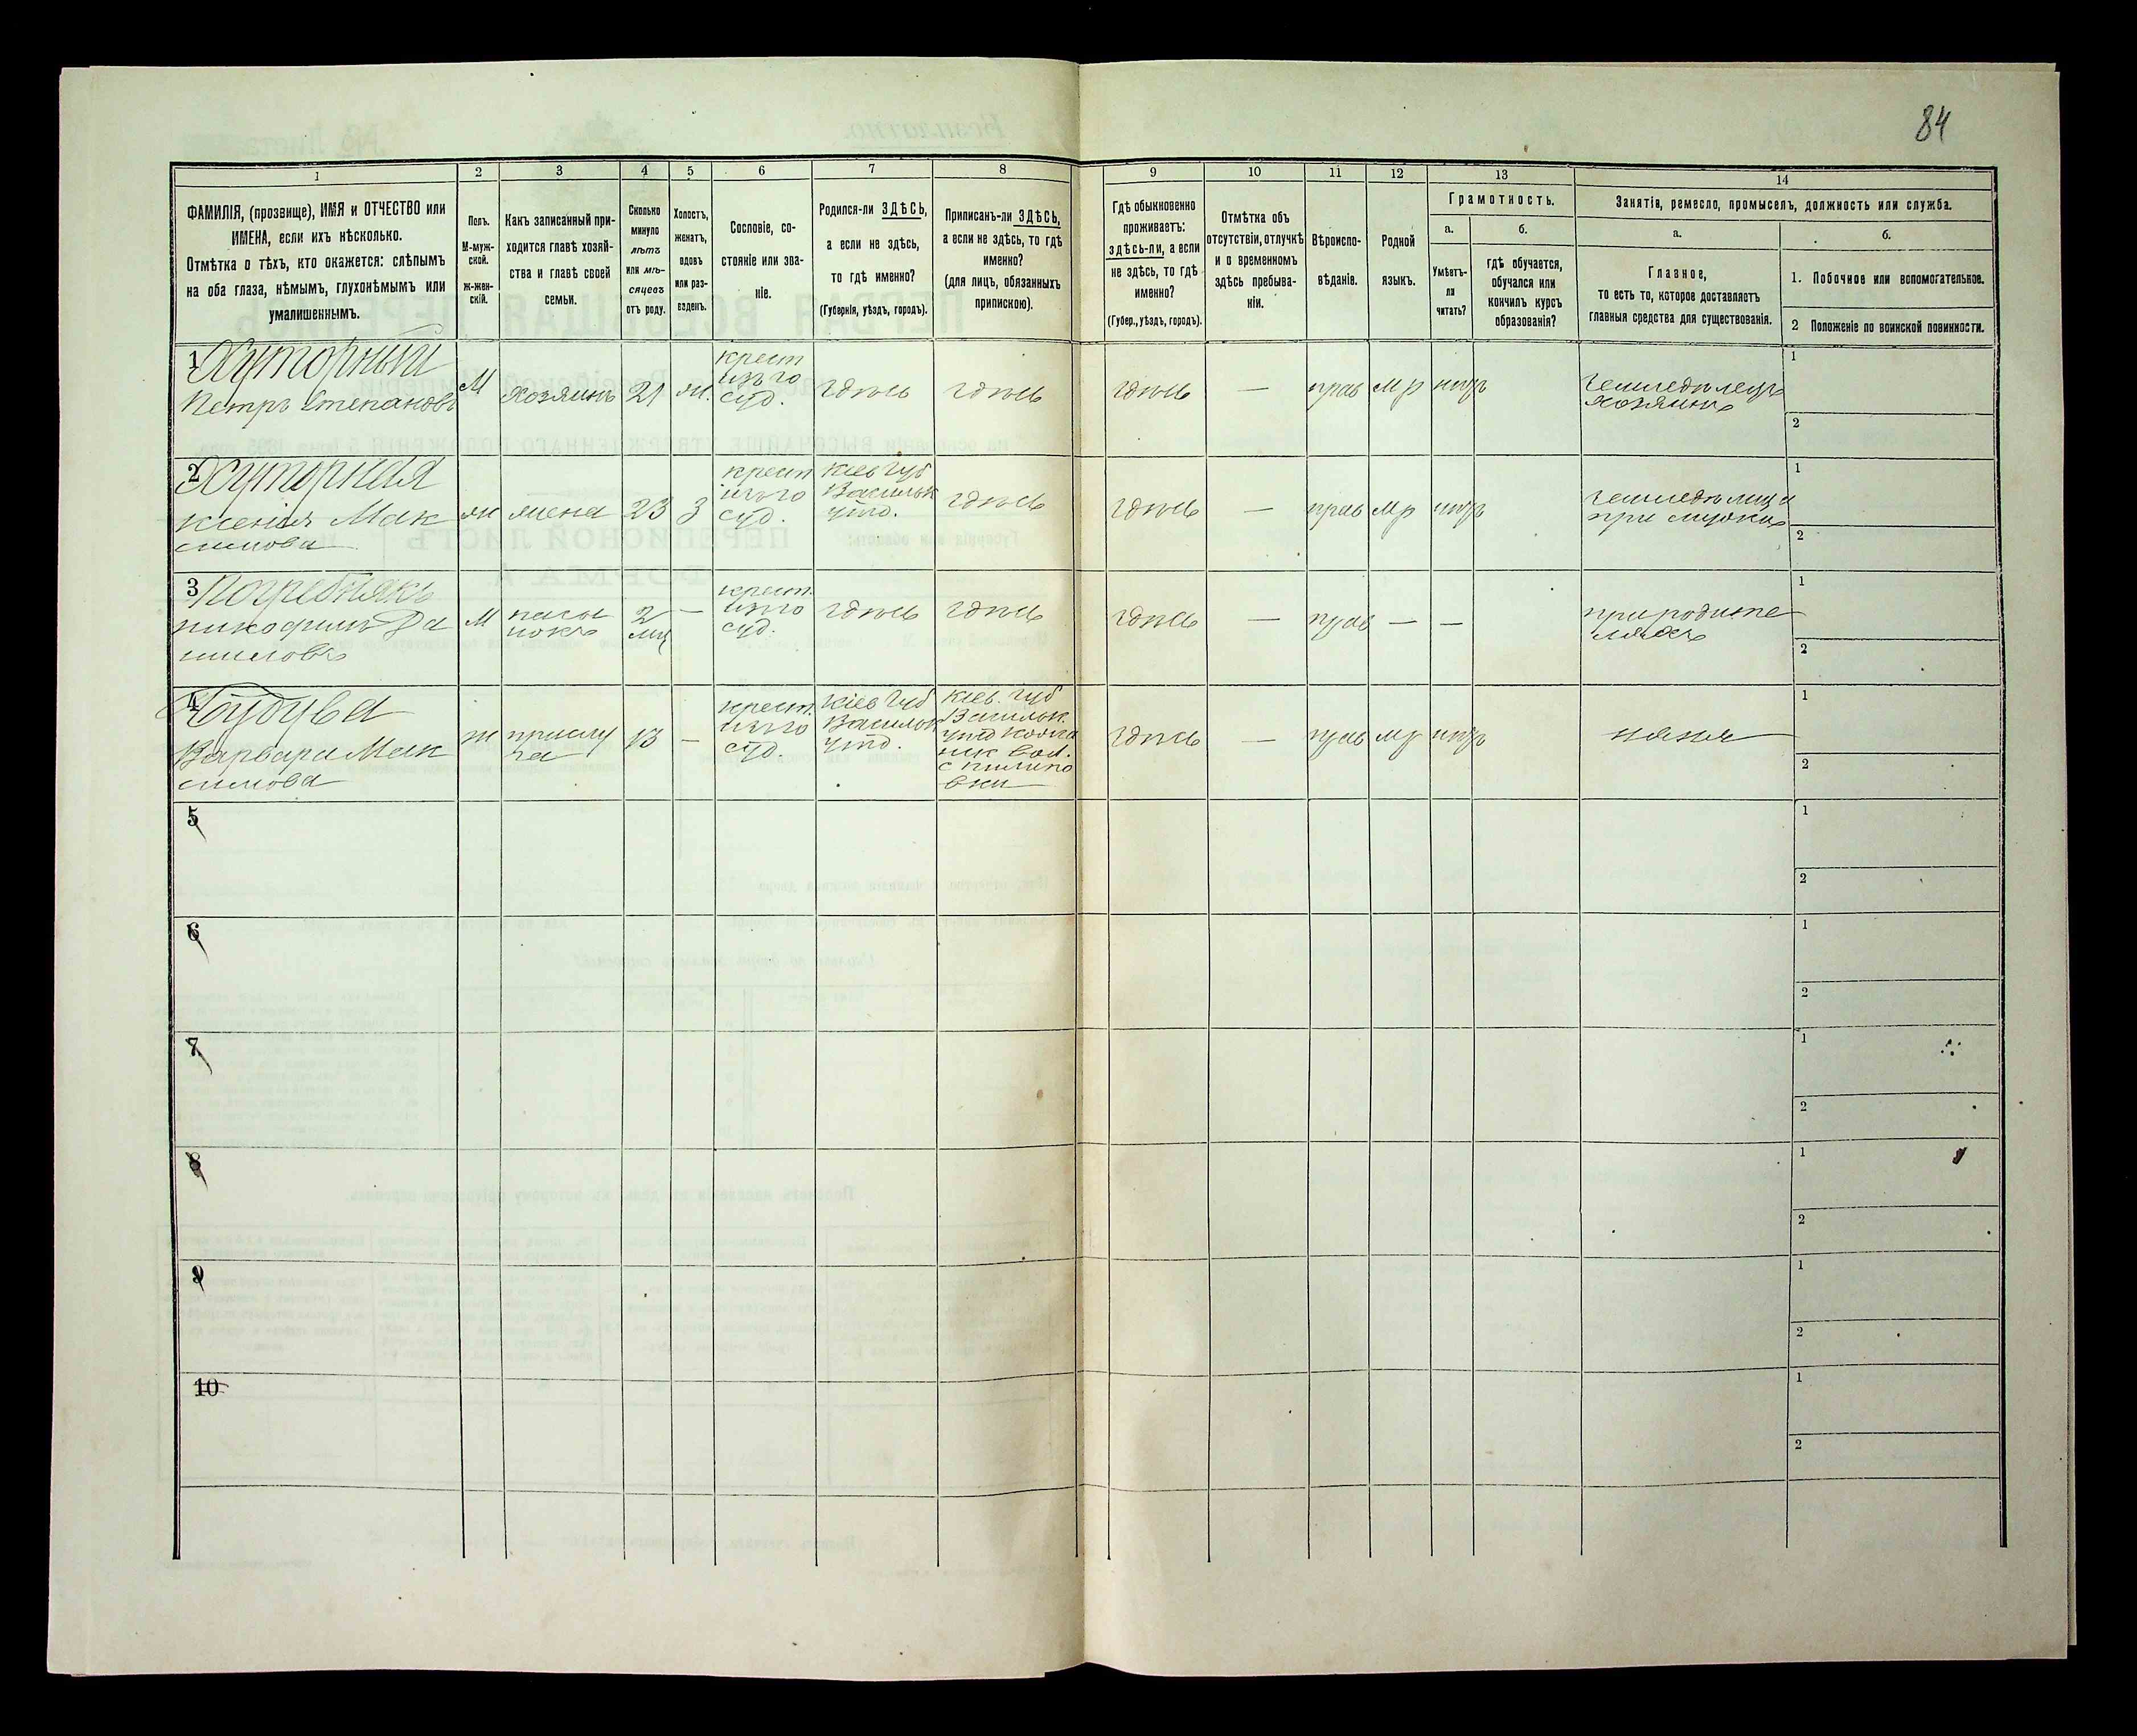 84
1 2 3 4 5 6 7 8 9 10 11 12 13 14
ФАМИЛІЯ, (прозвище), ИМЯ и ОТЧЕСТВО или
ИМЕНА, если ихъ нѣсколько.
Отмѣтка о тѣхъ, кто окажется: слѣпымъ
на оба глаза, нѣмымъ, глухонѣмымъ или
умалишеннымъ.
Полъ.
М-муж-
ской.
ж-жен-
скій.
Какъ записанный при-
ходится главѣ хозяй-
ства и главѣ своей
семьи.
Сколько
минуло
лѣтъ
или мѣ-
сяцевъ
отъ роду.
Холостъ,
женатъ,
вдовъ
или раз-
веденъ.
Сословіе, со-
стояніе или зва-
ніе.
Родился-ли ЗДѢСЬ,
а если не здѣсь,
то гдѣ именно?
(Губернія, уѣздъ, городъ).
Приписанъ-ли ЗДѢСЬ,
а если не здѣсь, то гдѣ
именно?
(для лицъ, обязанныхъ
припискою).
Гдѣ обыкновенно
проживаетъ:
здѣсь-ли, а если
не здѣсь, то гдѣ
именно?
(Губер., уѣздъ, городъ).
Отмѣтка объ
отсутствіи, отлучкѣ
и о временномъ
здѣсь пребыва-
ніи.
Вѣроиспо-
вѣданіе.
Родной
языкъ.
Грамотность.
а.
Умѣетъ-
ли
читать?
б.
гдѣ обучается,
обучался или
кончилъ курсъ
образованія?
Занятія, ремесло, промыселъ, должность или служба.
а.
Главное,
то есть то, которое доставляетъ
главныя средства для существованія.
б.
1. Побочное или вспомогательное.
2 Положеніе по воинской повинности.
1 Хуторный
Петръ Степановъ
М
хозяинъ
21
ж.
крест
изъ го
суд.
здѣсь
здѣсь
здѣсь
—
прав
мр
нѣтъ
земледѣлецъ
хозяинъ
1
2
2 Хуторная
Ксенія Мак
симова
ж
жена
23
З
крест
изъ го
суд.
Кіев Губ
Васильк
уѣзд.
здѣсь
здѣсь
—
прав
мр
нѣтъ
земледѣлица
при мужѣ
1
2
3 Погребнякъ
М
2
мѣс
—
крест.
изъ го
суд.
здѣсь
здѣсь
здѣсь
—
прав
—
—
при родите
ляхъ
1
2
4
Варвара Мак
симова
ж
прислу
га
13
—
крест.
изъ го
суд.
Кіев Губ
Васильк
уѣзд.
Кіев. Губ
Васильк.
здѣсь
—
прав
мр
нѣтъ
няня
1
2
5
1
2
6
1
2
7
1
2
8
1
2
9
1
2
10
1
2